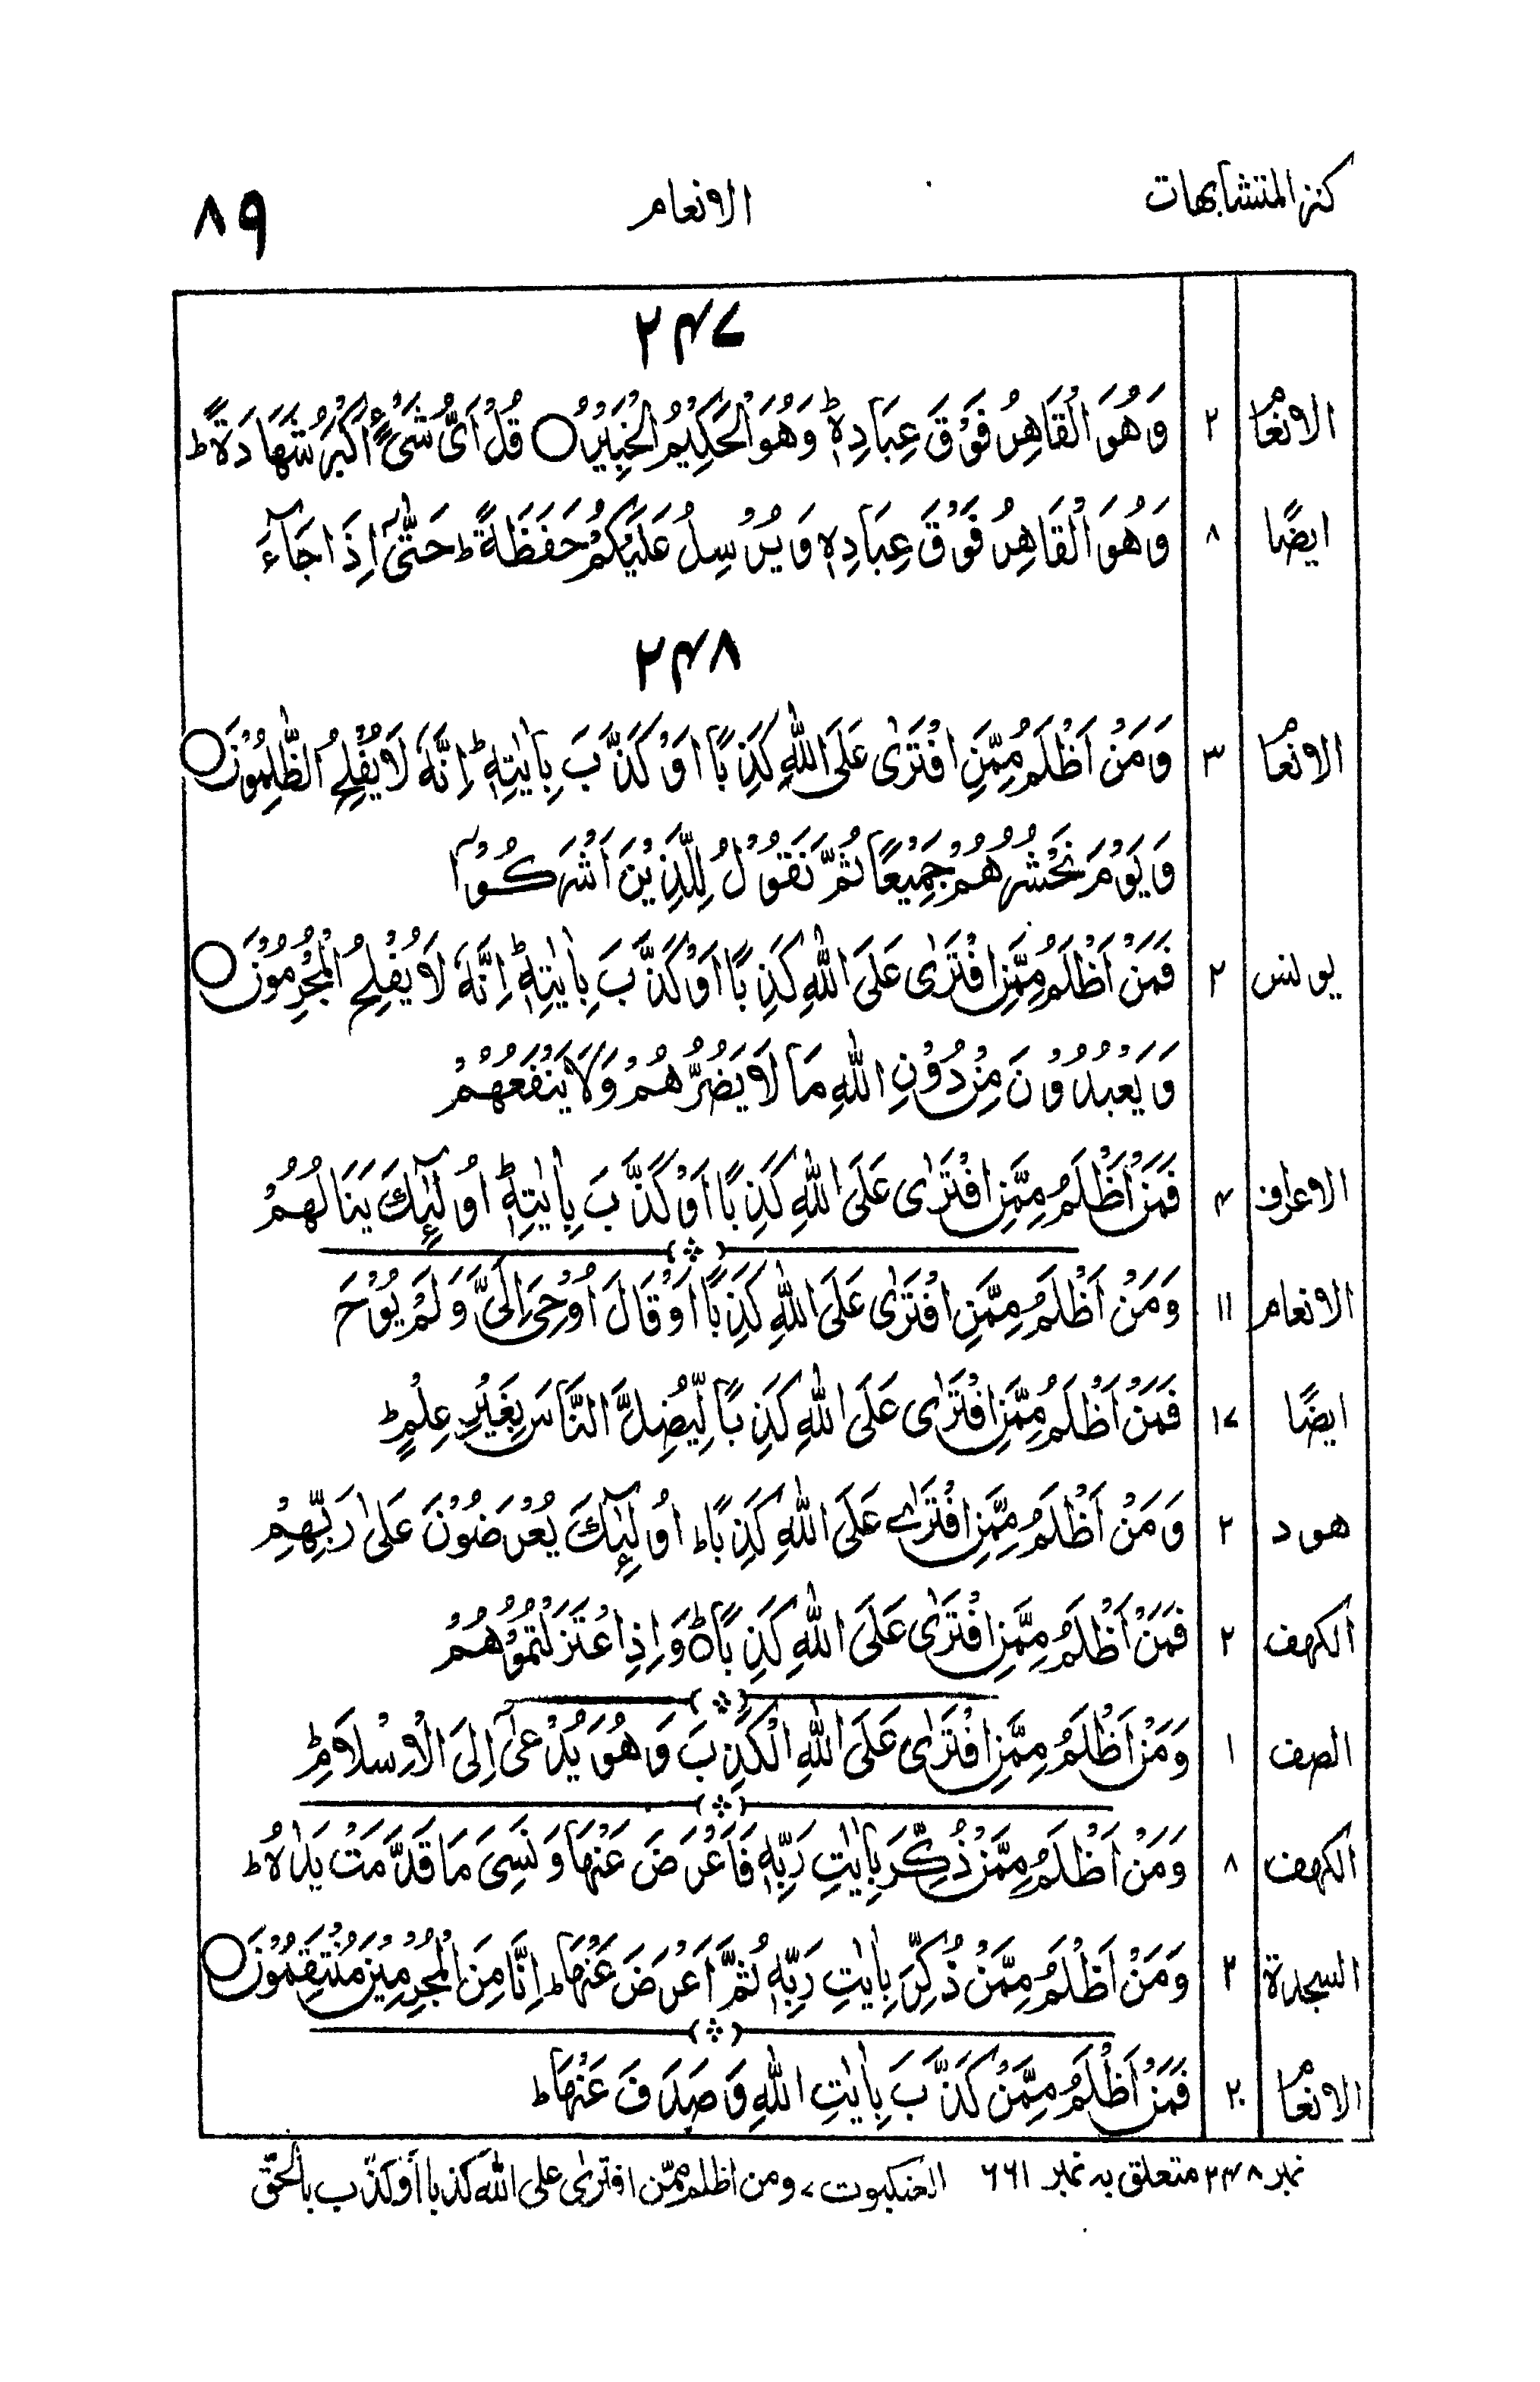 كنز المتشابهات الانعام ٨٩
٢٤٧
الانعام ٢ وَهُوَ الْقَاهِرُ فَوْقَ عِبَادِهٖ ؕ وَهُوَ الْحَكِيْمُ الْخَبِيْرُ ○ قُلْ اَیُّ شَیْءٍ اَكْبَرُ شَهَادَةً ؕ
ايضًا ٨ وَهُوَ الْقَاهِرُ فَوْقَ عِبَادِهٖ وَيُرْسِلُ عَلَيْكُمْ حَفَظَةً ؕ حَتّٰۤی اِذَا جَآءَ
٢٤٨
الانعام ٣ وَمَنْ اَظْلَمُ مِمَّنِ افْتَرٰی عَلَی اللّٰهِ كَذِبًا اَوْ كَذَّبَ بِاٰيٰتِهٖ ؕ اِنَّهٗ لَا يُفْلِحُ الظّٰلِمُوْنَ ○
وَيَوْمَ نَحْشُرُهُمْ جَمِيْعًا ثُمَّ نَقُوْلُ لِلَّذِيْنَ اَشْرَكُوْۤا
يونس ٢ فَمَنْ اَظْلَمُ مِمَّنِ افْتَرٰی عَلَی اللّٰهِ كَذِبًا اَوْ كَذَّبَ بِاٰيٰتِهٖ ؕ اِنَّهٗ لَا يُفْلِحُ الْمُجْرِمُوْنَ ○
وَيَعْبُدُوْنَ مِنْ دُوْنِ اللّٰهِ مَا لَا يَضُرُّهُمْ وَلَا يَنْفَعُهُمْ
الاعراف ٤ فَمَنْ اَظْلَمُ مِمَّنِ افْتَرٰی عَلَی اللّٰهِ كَذِبًا اَوْ كَذَّبَ بِاٰيٰتِهٖ ؕ اُولٰٓئِكَ يَنَالُهُمْ
الانعام ١١ وَمَنْ اَظْلَمُ مِمَّنِ افْتَرٰی عَلَی اللّٰهِ كَذِبًا اَوْ قَالَ اُوْحِیَ اِلَیَّ وَلَمْ يُوْحَ
ايضًا ١٧ فَمَنْ اَظْلَمُ مِمَّنِ افْتَرٰی عَلَی اللّٰهِ كَذِبًا لِّيُضِلَّ النَّاسَ بِغَيْرِ عِلْمٍ ؕ
هود ٢ وَمَنْ اَظْلَمُ مِمَّنِ افْتَرٰی عَلَی اللّٰهِ كَذِبًا ؕ اُولٰٓئِكَ يُعْرَضُوْنَ عَلٰی رَبِّهِمْ
الكهف ٢ فَمَنْ اَظْلَمُ مِمَّنِ افْتَرٰی عَلَی اللّٰهِ كَذِبًا ؕ وَاِذِ اعْتَزَلْتُمُوْهُمْ
الصف ١ وَمَنْ اَظْلَمُ مِمَّنِ افْتَرٰی عَلَی اللّٰهِ الْكَذِبَ وَهُوَ يُدْعٰۤی اِلَی الْاِسْلَامِ ؕ
الكهف ٨ وَمَنْ اَظْلَمُ مِمَّنْ ذُكِّرَ بِاٰيٰتِ رَبِّهٖ فَاَعْرَضَ عَنْهَا وَنَسِیَ مَا قَدَّمَتْ يَدٰهُ ؕ
السجدة ٢ وَمَنْ اَظْلَمُ مِمَّنْ ذُكِّرَ بِاٰيٰتِ رَبِّهٖ ثُمَّ اَعْرَضَ عَنْهَا ؕ اِنَّا مِنَ الْمُجْرِمِيْنَ مُنْتَقِمُوْنَ ○
الانعام ٢٠ فَمَنْ اَظْلَمُ مِمَّنْ كَذَّبَ بِاٰيٰتِ اللّٰهِ وَصَدَفَ عَنْهَا ؕ
نمبر ٢٤٨ متعلق بہ نمبر ٦٦١ العنكبوت ٧ ومن اظلم ممّن افترٰی علی اللّٰه كذبا أو كذّب بالحقّ